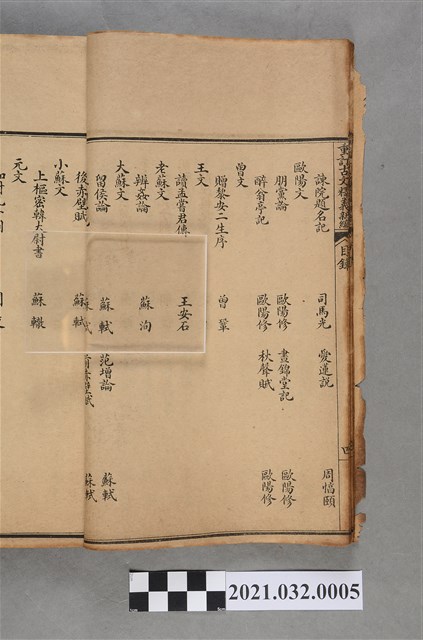 重訂古文釋義新編 目錄 四
諫院題名記 司馬光 愛蓮說 周惇頤
歐陽文
朋黨論 歐陽修 晝錦堂記 歐陽修
醉翁亭記 歐陽修 秋聲賦 歐陽修
曾文
贈黎安二生序 曾鞏
王文
讀孟嘗君傳 王安石
老蘇文
辨姦論 蘇洵
大蘇文
留侯論 蘇軾 范增論 蘇軾
蘇軾 前赤壁賦 蘇軾
後赤壁賦 蘇軾
小蘇文
上樞密韓太尉書 蘇轍
元文
2021.032.0005